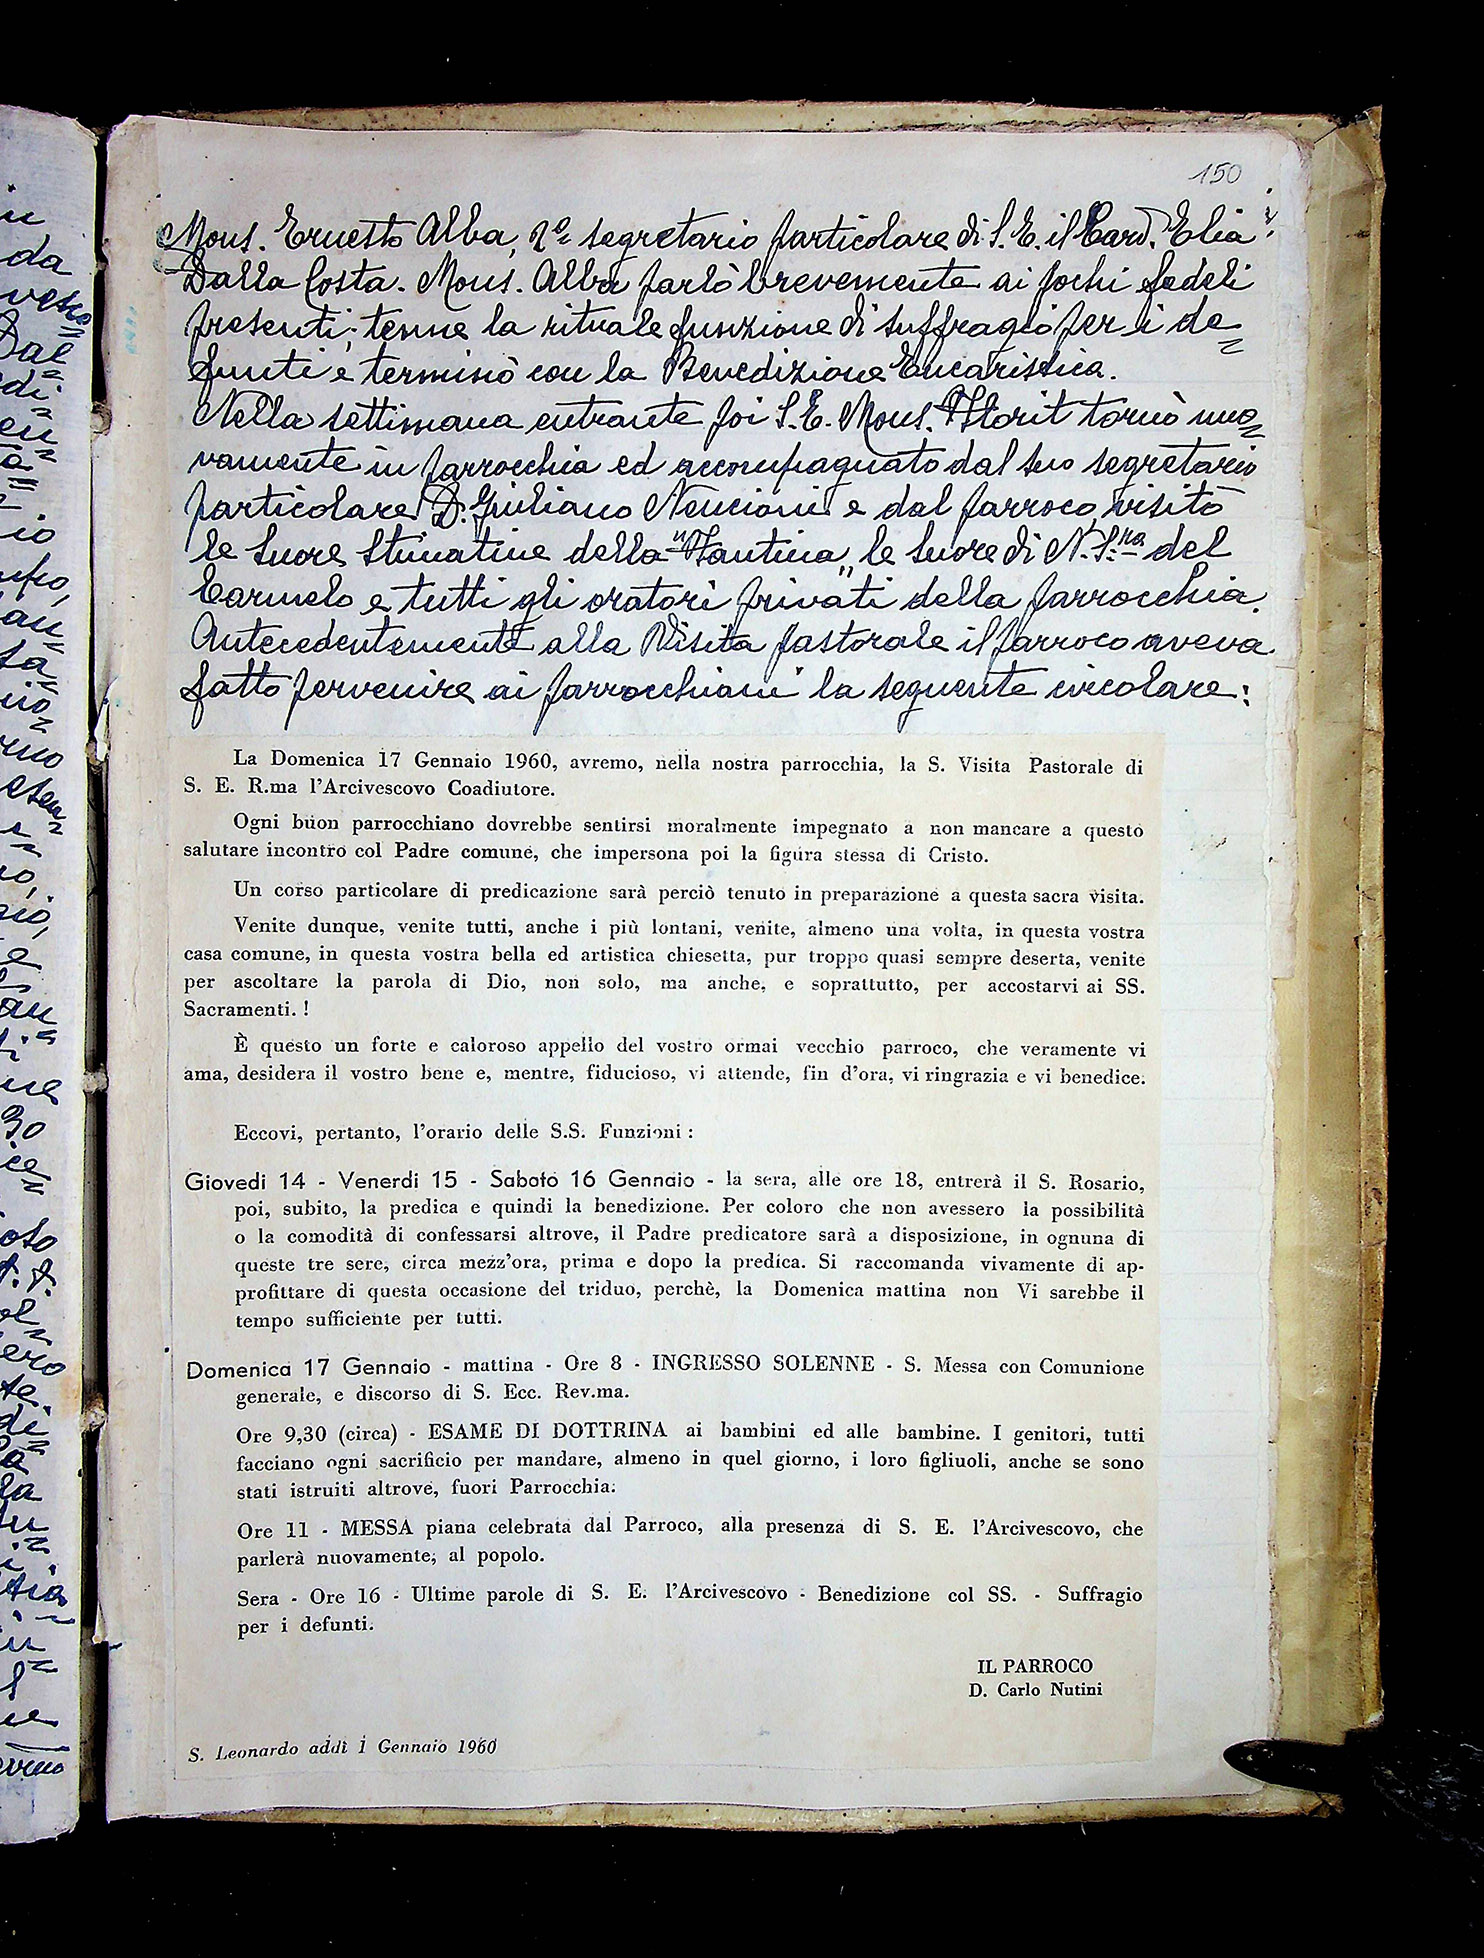 150
Mons. Ernesto Alba, 2º segretario particolare di S. E. il Card. Elia
Dalla Costa. Mons. Alba parlò brevemente ai pochi fedeli
presenti; tenne la rituale funzione di suffragio per i de=
funti e terminò con la Benedizione Eucaristica.
Nella settimana entrante poi S. E. Mons. Florit tornò nuo=
vamente in parrocchia ed accompagnato dal suo segretario
particolare D. Giuliano Nencioni e dal parroco, visitò
le Suore Stimatine della "Fantina", le Suore di N. S.ra del
Carmelo e tutti gli oratori privati della parrocchia.
Antecedentemente alla Visita pastorale il parroco aveva
fatto pervenire ai parrocchiani la seguente circolare:
La Domenica 17 Gennaio 1960, avremo, nella nostra parrocchia, la S. Visita Pastorale di
S. E. R.ma l'Arcivescovo Coadiutore.
Ogni buon parrocchiano dovrebbe sentirsi moralmente impegnato a non mancare a questo
salutare incontro col Padre comune, che impersona poi la figura stessa di Cristo.
Un corso particolare di predicazione sarà perciò tenuto in preparazione a questa sacra visita.
Venite dunque, venite tutti, anche i più lontani, venite, almeno una volta, in questa vostra
casa comune, in questa vostra bella ed artistica chiesetta, pur troppo quasi sempre deserta, venite
per ascoltare la parola di Dio, non solo, ma anche, e soprattutto, per accostarvi ai SS.
Sacramenti. !
È questo un forte e caloroso appello del vostro ormai vecchio parroco, che veramente vi
ama, desidera il vostro bene e, mentre, fiducioso, vi attende, fin d'ora, vi ringrazia e vi benedice.
Eccovi, pertanto, l'orario delle S.S. Funzioni :
Giovedi 14 - Venerdi 15 - Sabato 16 Gennaio - la sera, alle ore 18, entrerà il S. Rosario,
poi, subito, la predica e quindi la benedizione. Per coloro che non avessero la possibilità
o la comodità di confessarsi altrove, il Padre predicatore sarà a disposizione, in ognuna di
queste tre sere, circa mezz'ora, prima e dopo la predica. Si raccomanda vivamente di ap-
profittare di questa occasione del triduo, perchè, la Domenica mattina non Vi sarebbe il
tempo sufficiente per tutti.
Domenica 17 Gennaio - mattina - Ore 8 - INGRESSO SOLENNE - S. Messa con Comunione
generale, e discorso di S. Ecc. Rev.ma.
Ore 9,30 (circa) - ESAME DI DOTTRINA ai bambini ed alle bambine. I genitori, tutti
facciano ogni sacrificio per mandare, almeno in quel giorno, i loro figliuoli, anche se sono
stati istruiti altrove, fuori Parrocchia.
Ore 11 - MESSA piana celebrata dal Parroco, alla presenza di S. E. l'Arcivescovo, che
parlerà nuovamente, al popolo.
Sera - Ore 16 - Ultime parole di S. E. l'Arcivescovo - Benedizione col SS. - Suffragio
per i defunti.
IL PARROCO
D. Carlo Nutini
S. Leonardo addì 1 Gennaio 1960